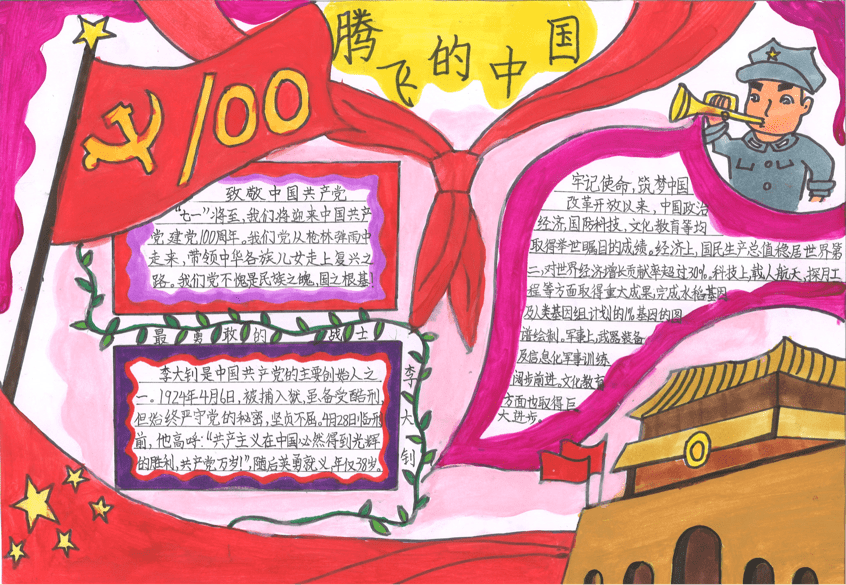 腾飞的中国
100
致敬中国共产党
“七一”将至,我们将迎来中国共产
党建党100周年。我们党从枪林弹雨中
走来,带领中华各族儿女走上复兴之
路。我们党不愧是民族之魂,国之根基!
最勇敢的战士
李大钊
李大钊是中国共产党的主要创始人之
一。1924年4月6日,被捕入狱,虽备受酷刑,
但始终严守党的秘密,坚贞不屈。4月28日临刑
前,他高呼:“共产主义在中国必然得到光辉
的胜利,共产党万岁!”,随后英勇就义,年仅38岁。
牢记使命,筑梦中国
改革开放以来,中国政治
经济,国防科技,文化教育等均
取得举世瞩目的成绩。经济上,国民生产总值稳居世界第
二,对世界经济增长贡献率超过30%。科技上,载人航天,探月工
程等方面取得重大成果,完成水稻基因
及人类基因组计划的1%基因的图
谱绘制。军事上,武器装备
及信息化军事训练
阔步前进。文化教育
方面也取得巨
大进步。